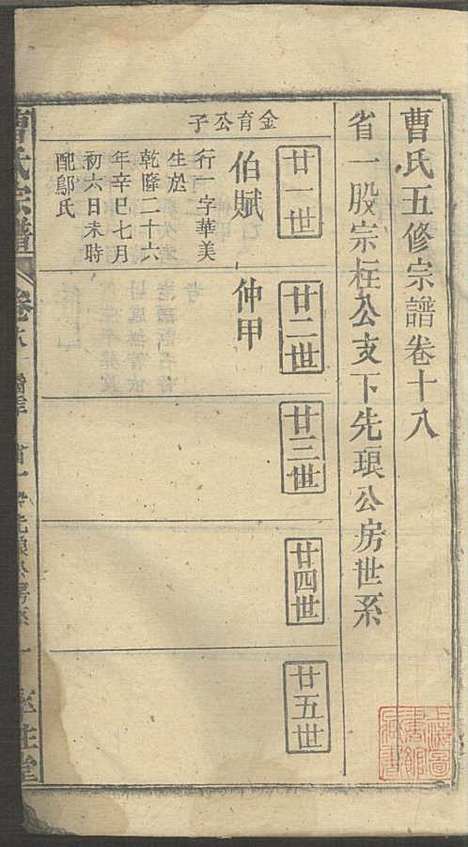 曹氏五修宗譜卷十八
省一股宗枉公支下先琅公房世系
廿一世
廿二世
廿三世
廿四世
廿五世
金育公子
伯賦
仲甲
行一字華美
生於
乾隆二十六
年辛巳七月
初六日未時
配鄔氏
曹氏宗譜
卷
上海圖
書館
藏書